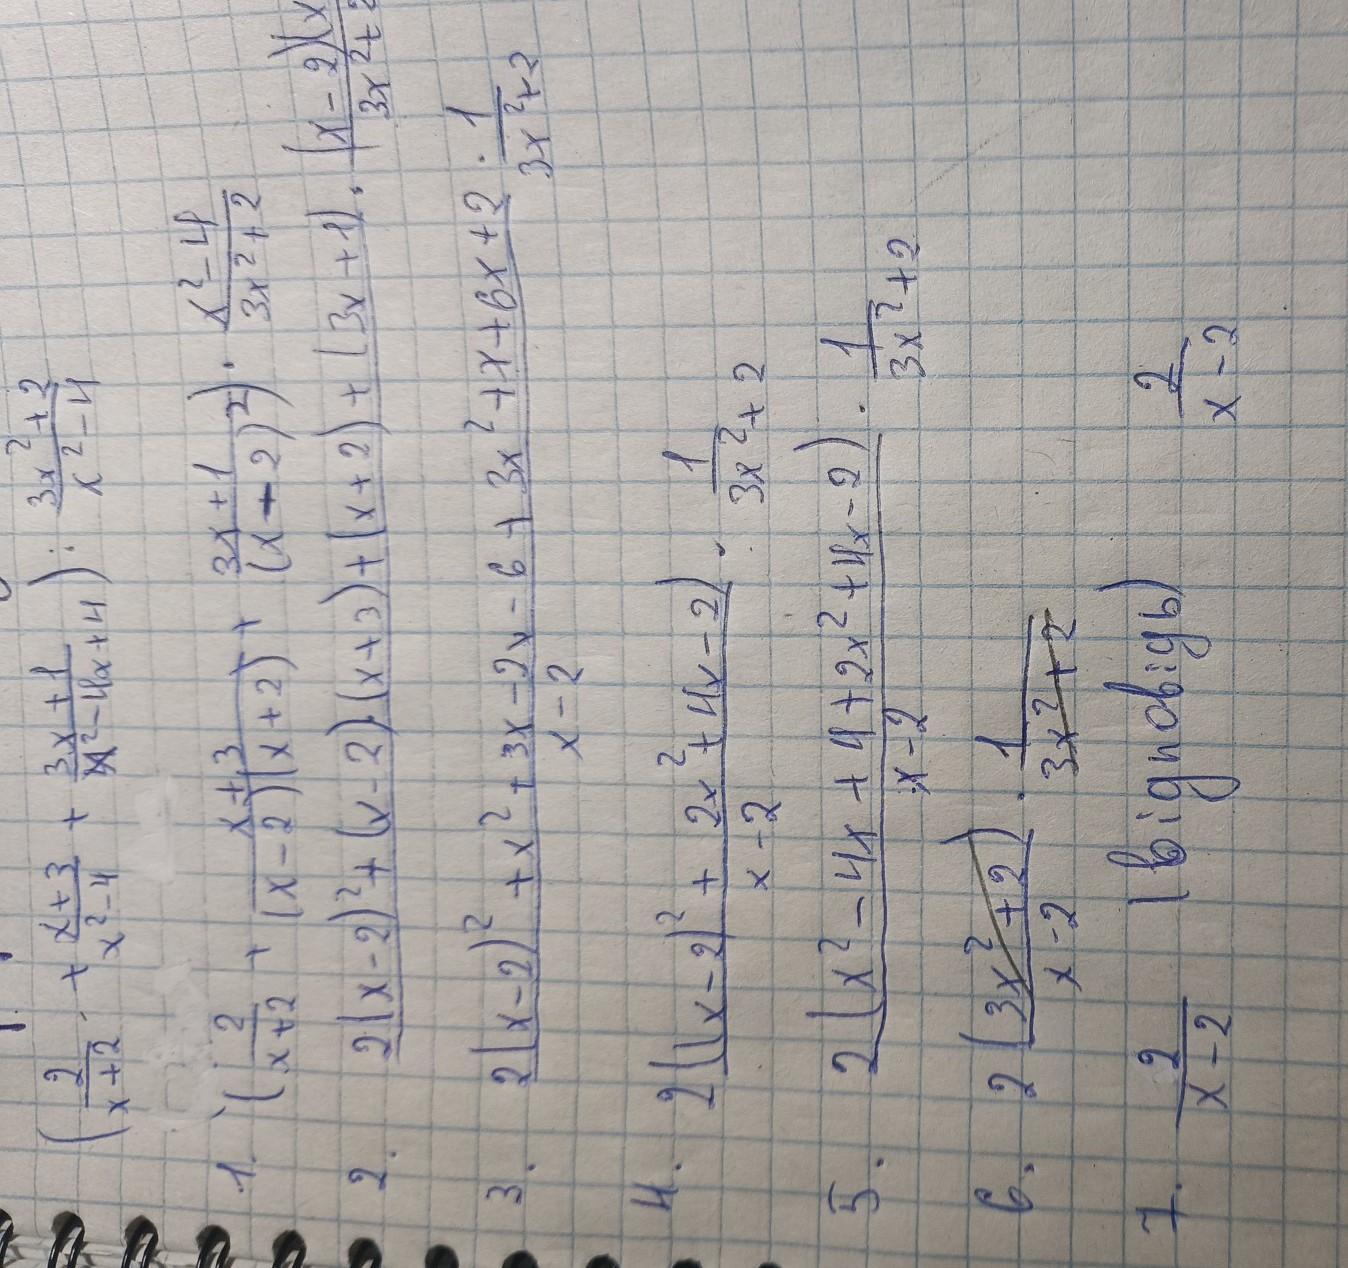 (2/(x+2) + (x+3)/(x²-4) + (3x+1)/(x²-4x+4)) : (3x²+2)/(x²-4)
1. (2/(x+2) + (x+3)/((x-2)(x+2)) + (3x+1)/(x-2)²) · (x²-4)/(3x²+2)
2. 2(x-2)²+(x-2)(x+3)+(x+2)+(3x+1) · (x-2)(x / 3x²+2
3. (2(x-2)²+x²+3x-2x-6+3x²+x+6x+2)/(x-2) · 1/(3x²+2)
4. 2((x-2)²+2x²+4x-2)/(x-2) · 1/(3x²+2)
5. 2(x²-4x+4+2x²+4x-2)/(x-2) · 1/(3x²+2)
6. 2(3x²+2)/(x-2) · 1/(3x²+2)
7. 2/(x-2) (відповідь) 2/(x-2)